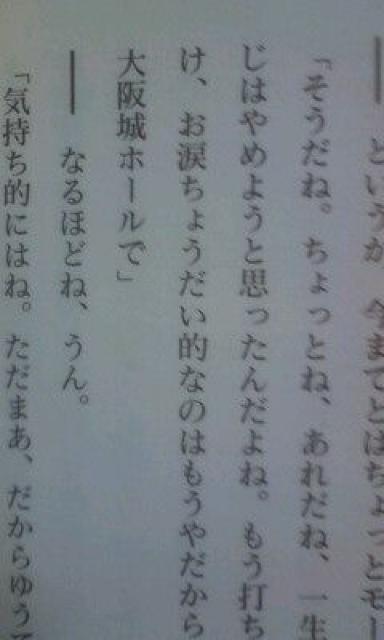 ――というか、今までとはちょっとモー
「そうだね。ちょっとね、あれだね、一生
じはやめようと思ったんだよね。もう打ち
け、お涙ちょうだい的なのはもうやだから
大阪城ホールで」
――なるほどね、うん。
「気持ち的にはね。ただまあ、だからゆうて